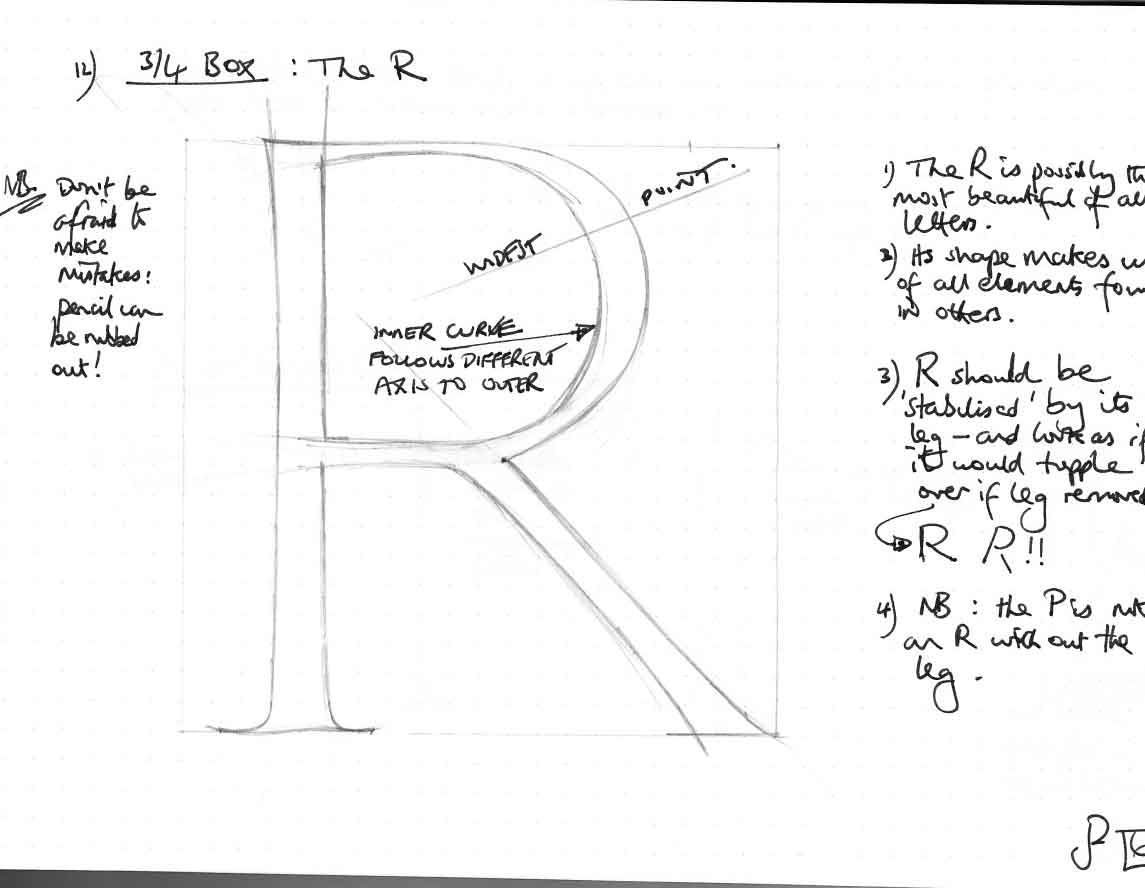 12) 3/4 Box : The R
NB. Don't be
afraid to
make
mistakes:
pencil can
be rubbed
out!
WIDEST POINT.
INNER CURVE
FOLLOWS DIFFERENT
AXIS TO OUTER
1) The R is possibly th
most beautiful of all
letters.
2) Its shape makes u
of all elements fou
in others.
3) R should be
'stabilised' by its
leg – and look as if
it would topple
over if leg removed
R R!!
4) NB : the P is not
an R without the
leg.